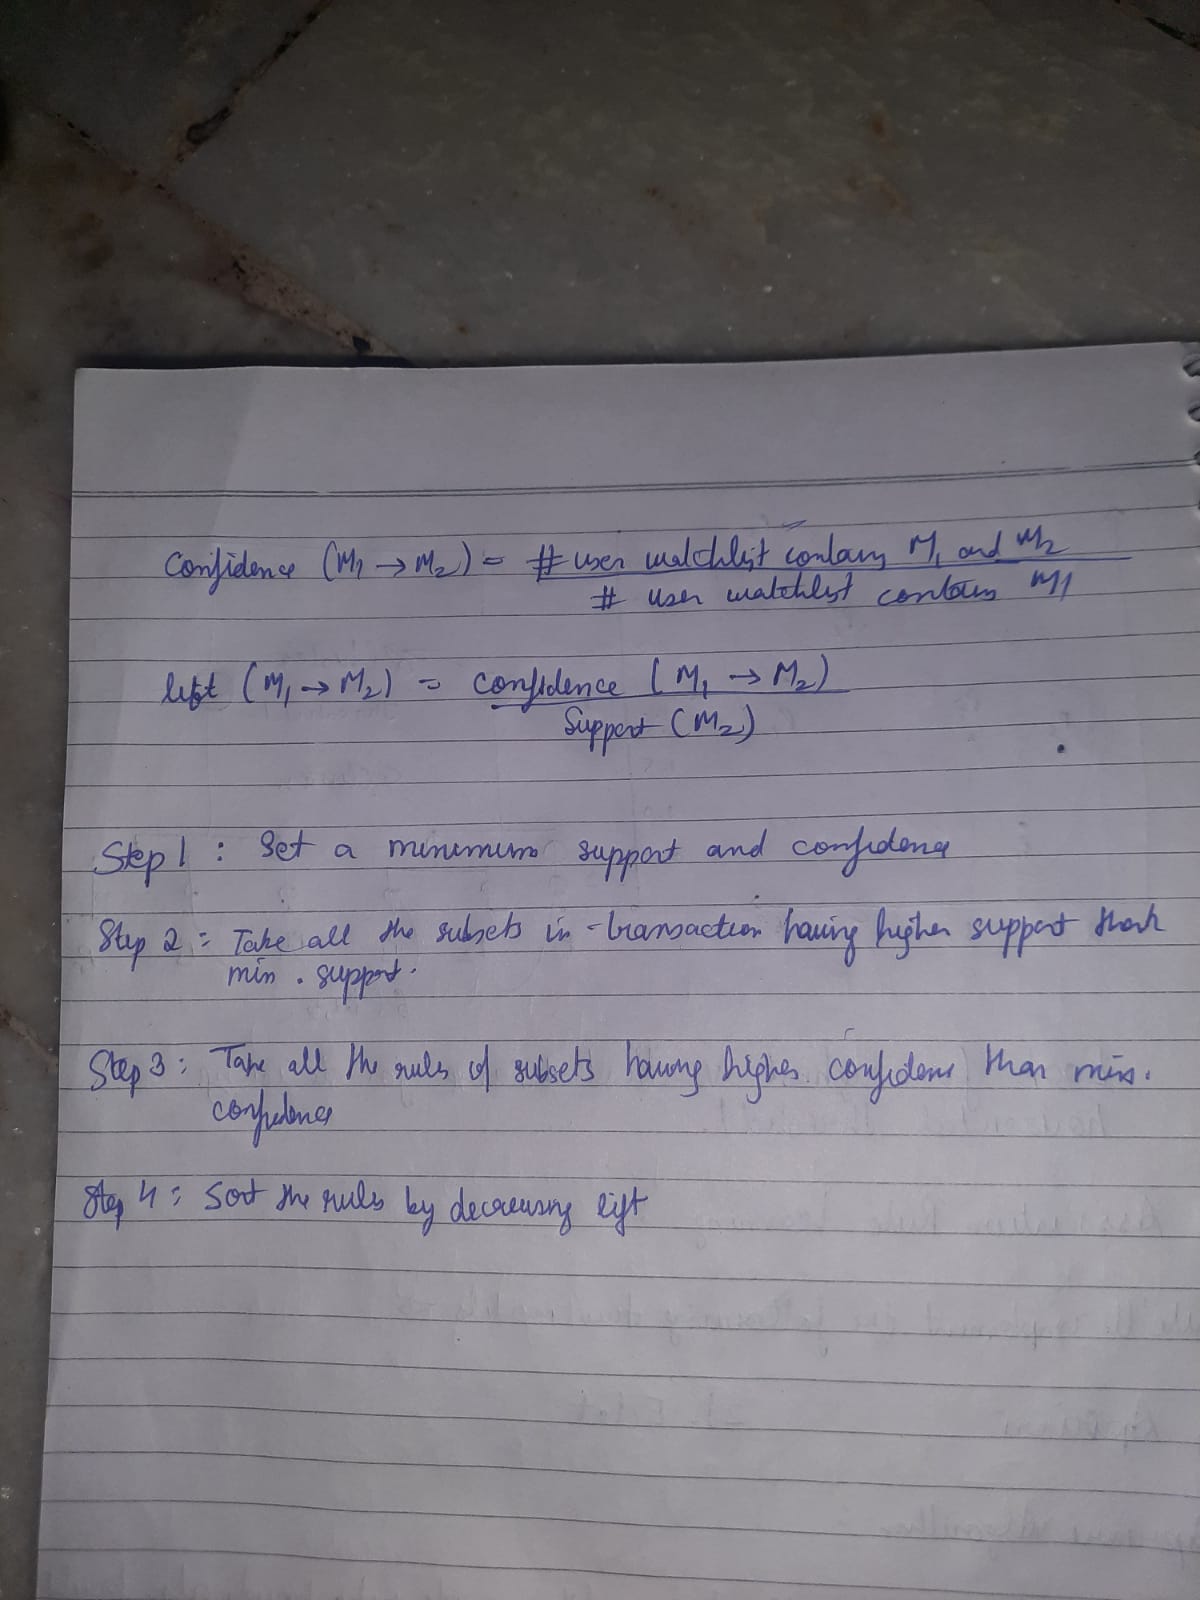 Confidence (M1 → M2) = # user watchlist contains M1 and M2
# user watchlist contains M1
lift (M1 → M2) = confidence (M1 → M2)
Support (M2)
Step 1 : Set a minimum support and confidence
Step 2 : Take all the subsets in transaction having higher support than
min . support.
Step 3 : Take all the rules of subsets having higher confidence than min.
confidence
Step 4 : Sort the rules by decreasing lift